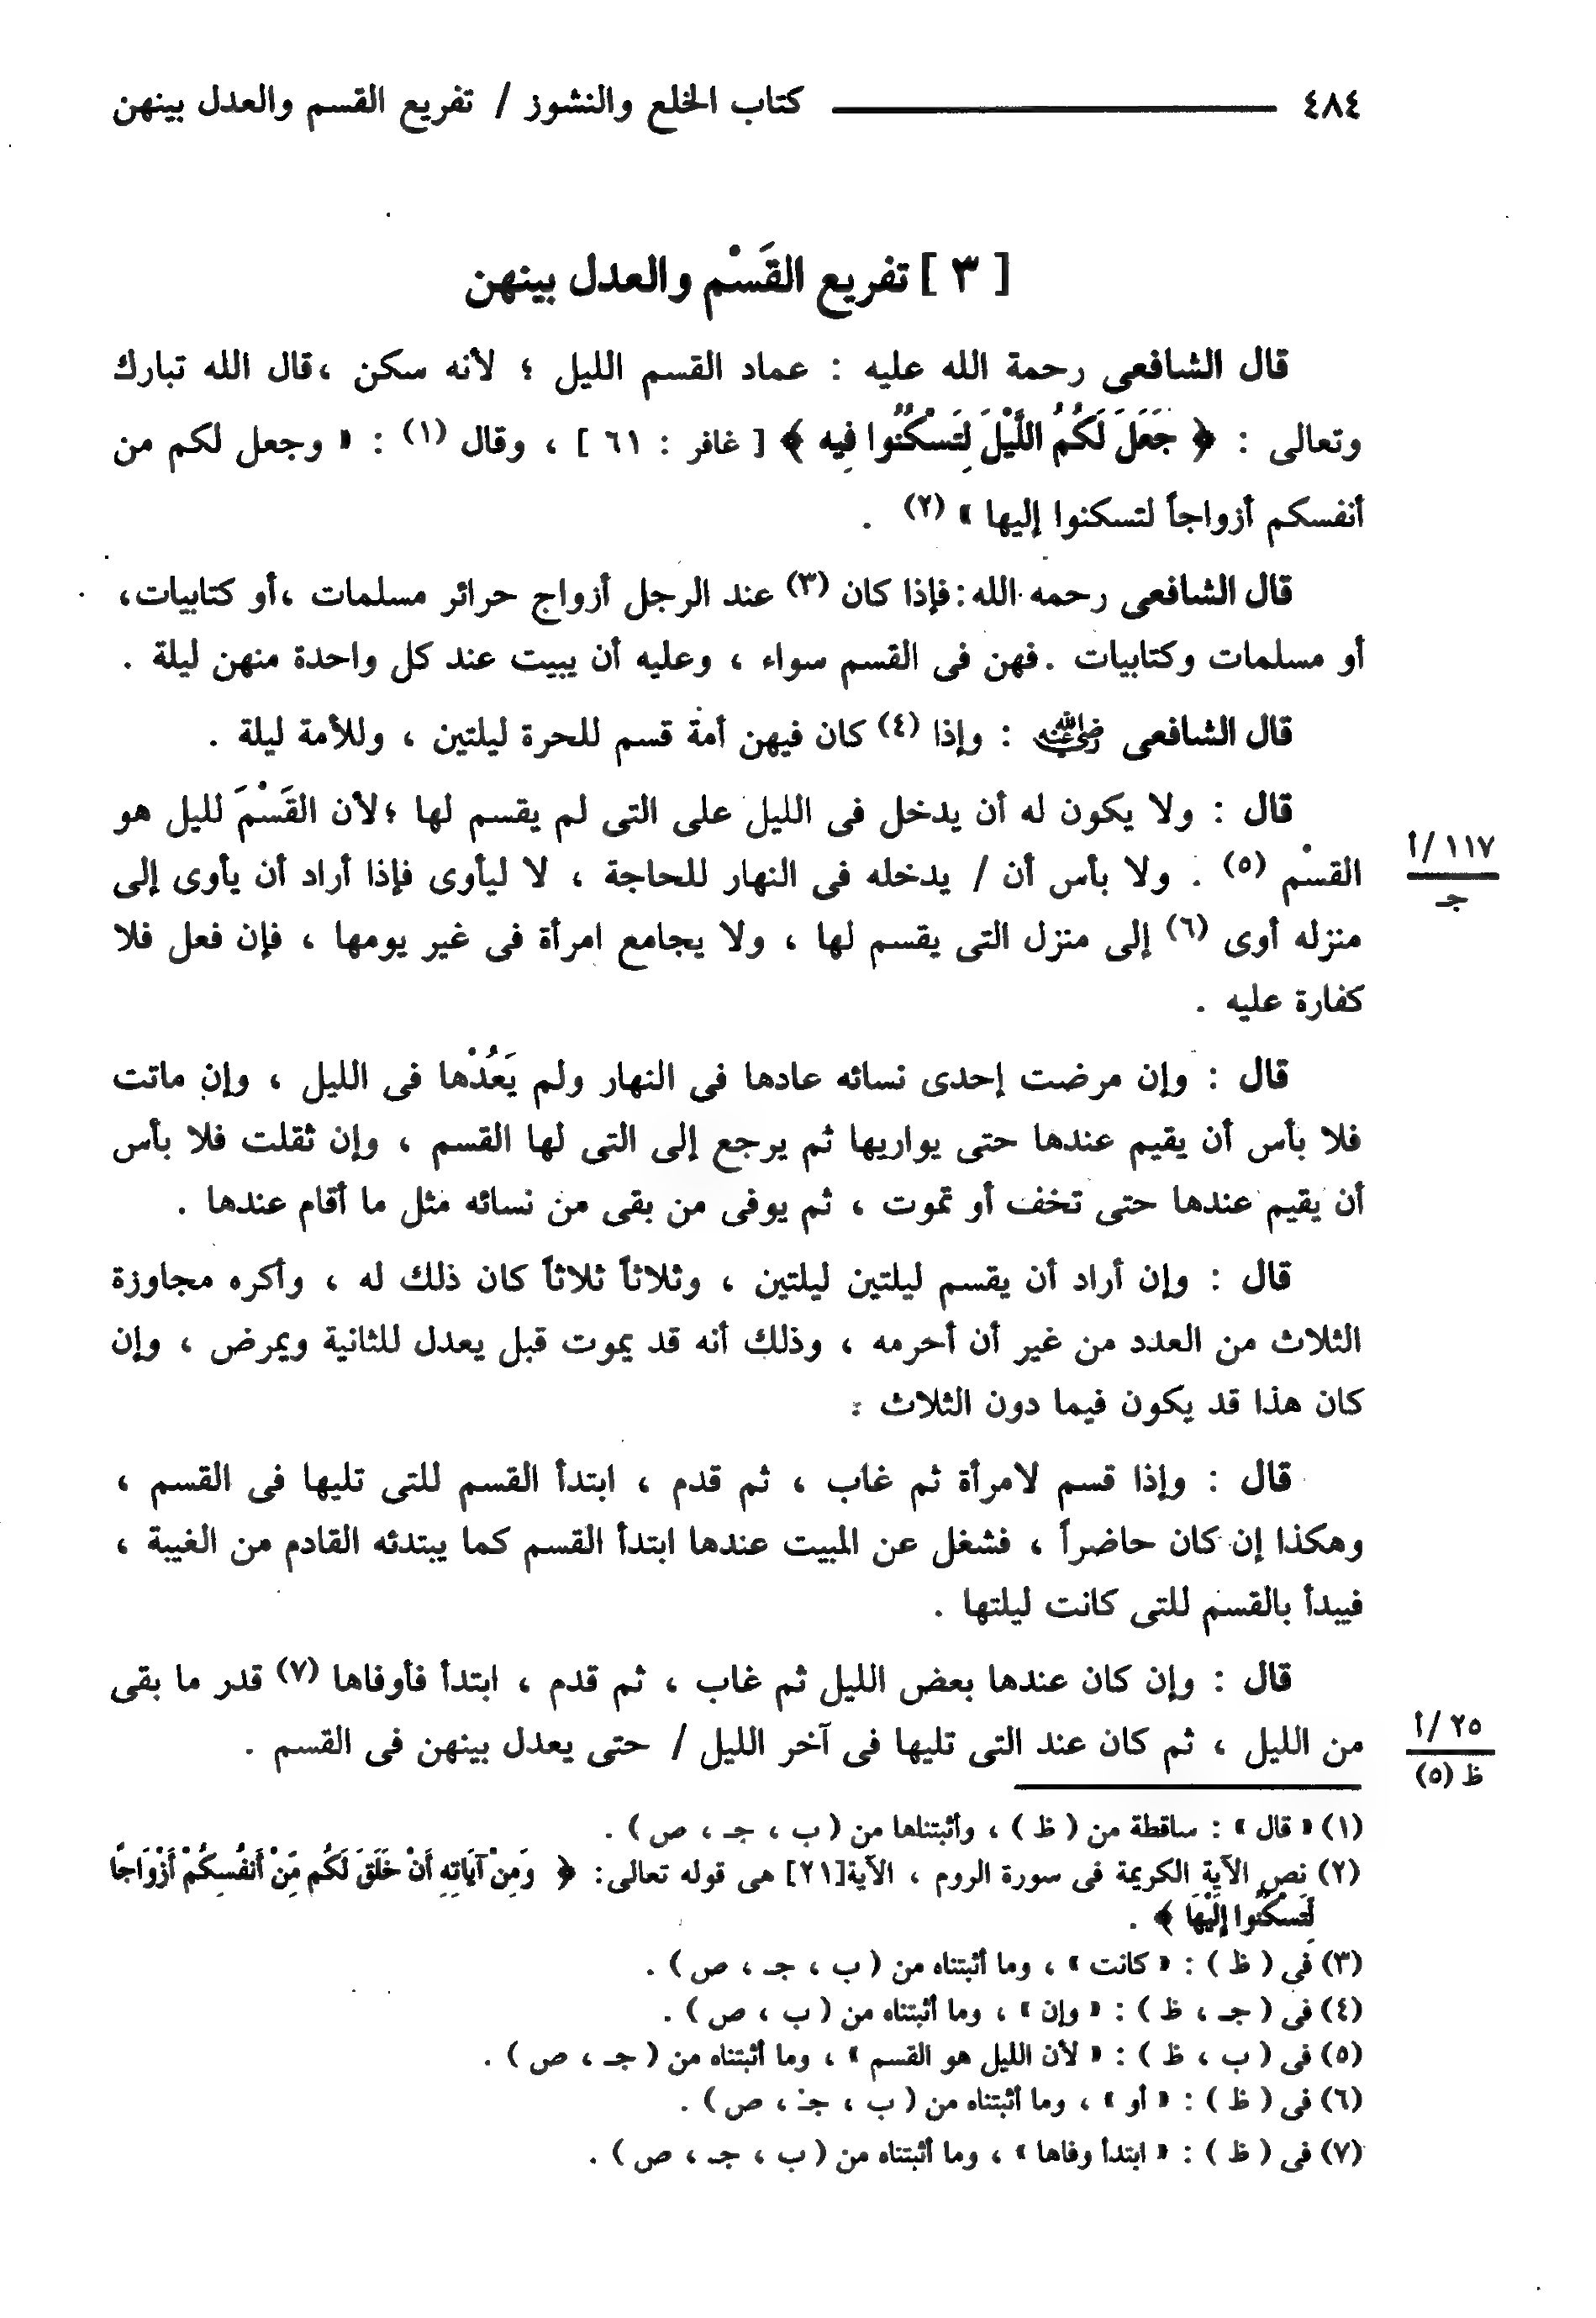 ٤٨٤ ــــــــــــــــ كتاب الخلع والنشوز / تفريع القسم والعدل بينهن
[ ٣ ] تفريع القَسْم والعدل بينهن
قال الشافعى رحمة الله عليه : عماد القسم الليل ؛ لأنه سكن ،قال الله تبارك
وتعالى : ﴿ جَعَلَ لَكُمُ اللَّيْلَ لِتَسْكُنُوا فِيهِ ﴾ [ غافر : ٦١ ] ، وقال (١) : « وجعل لكم من
أنفسكم أزواجاً لتسكنوا إليها » (٢) .
قال الشافعى رحمه الله :فإذا كان (٣) عند الرجل أزواج حرائر مسلمات ،أو كتابيات،
أو مسلمات وكتابيات .فهن فى القسم سواء ، وعليه أن يبيت عند كل واحدة منهن ليلة .
قال الشافعى رضي الله عنه : وإذا (٤) كان فيهن أمة قسم للحرة ليلتين ، وللأمة ليلة .
قال : ولا يكون له أن يدخل فى الليل على التى لم يقسم لها ؛لأن القَسْمَ لليل هو
القسْم (٥) . ولا بأس أن / يدخله فى النهار للحاجة ، لا ليأوى فإذا أراد أن يأوى إلى
١١٧ /أ
جـ
منزله أوى (٦) إلى منزل التى يقسم لها ، ولا يجامع امرأة فى غير يومها ، فإن فعل فلا
كفارة عليه .
قال : وإن مرضت إحدى نسائه عادها فى النهار ولم يَعُدْها فى الليل ، وإن ماتت
فلا بأس أن يقيم عندها حتى يواريها ثم يرجع إلى التى لها القسم ، وإن ثقلت فلا بأس
أن يقيم عندها حتى تخف أو تموت ، ثم يوفى من بقى من نسائه مثل ما أقام عندها .
قال : وإن أراد أن يقسم ليلتين ليلتين ، وثلاثاً ثلاثاً كان ذلك له ، وأكره مجاوزة
الثلاث من العدد من غير أن أحرمه ، وذلك أنه قد يموت قبل يعدل للثانية ويمرض ، وإن
كان هذا قد يكون فيما دون الثلاث :
قال : وإذا قسم لامرأة ثم غاب ، ثم قدم ، ابتدأ القسم للتى تليها فى القسم ،
وهكذا إن كان حاضراً ، فشغل عن المبيت عندها ابتدأ القسم كما يبتدئه القادم من الغيبة ،
فيبدأ بالقسم للتى كانت ليلتها .
قال : وإن كان عندها بعض الليل ثم غاب ، ثم قدم ، ابتدأ فأوفاها (٧) قدر ما بقى
من الليل ، ثم كان عند التى تليها فى آخر الليل / حتى يعدل بينهن فى القسم .
٢٥ /أ
ظ (٥)
(١) « قال » : ساقطة من ( ظ ) ، وأثبتناها من ( ب ، جـ ، ص ) .
(٢) نص الآية الكريمة فى سورة الروم ، الآية[٢١] هى قوله تعالى: ﴿ وَمِنْ آيَاتِهِ أَنْ خَلَقَ لَكُم مِّنْ أَنفُسِكُمْ أَزْوَاجًا
لِّتَسْكُنُوا إِلَيْهَا ﴾ .
(٣) فى ( ظ ) : « كانت » ، وما أثبتناه من ( ب ، جـ ، ص ) .
(٤) فى ( جـ ، ظ ) : « وإن » ، وما أثبتناه من ( ب ، ص ) .
(٥) فى ( ب ، ظ ) : « لأن الليل هو القسم » ، وما أثبتناه من ( جـ ، ص ) .
(٦) فى ( ظ ) : « أو » ، وما أثبتناه من ( ب ، جـ ، ص ) .
(٧) فى ( ظ ) : « ابتدأ وفاها » ، وما أثبتناه من ( ب ، جـ ، ص ) .